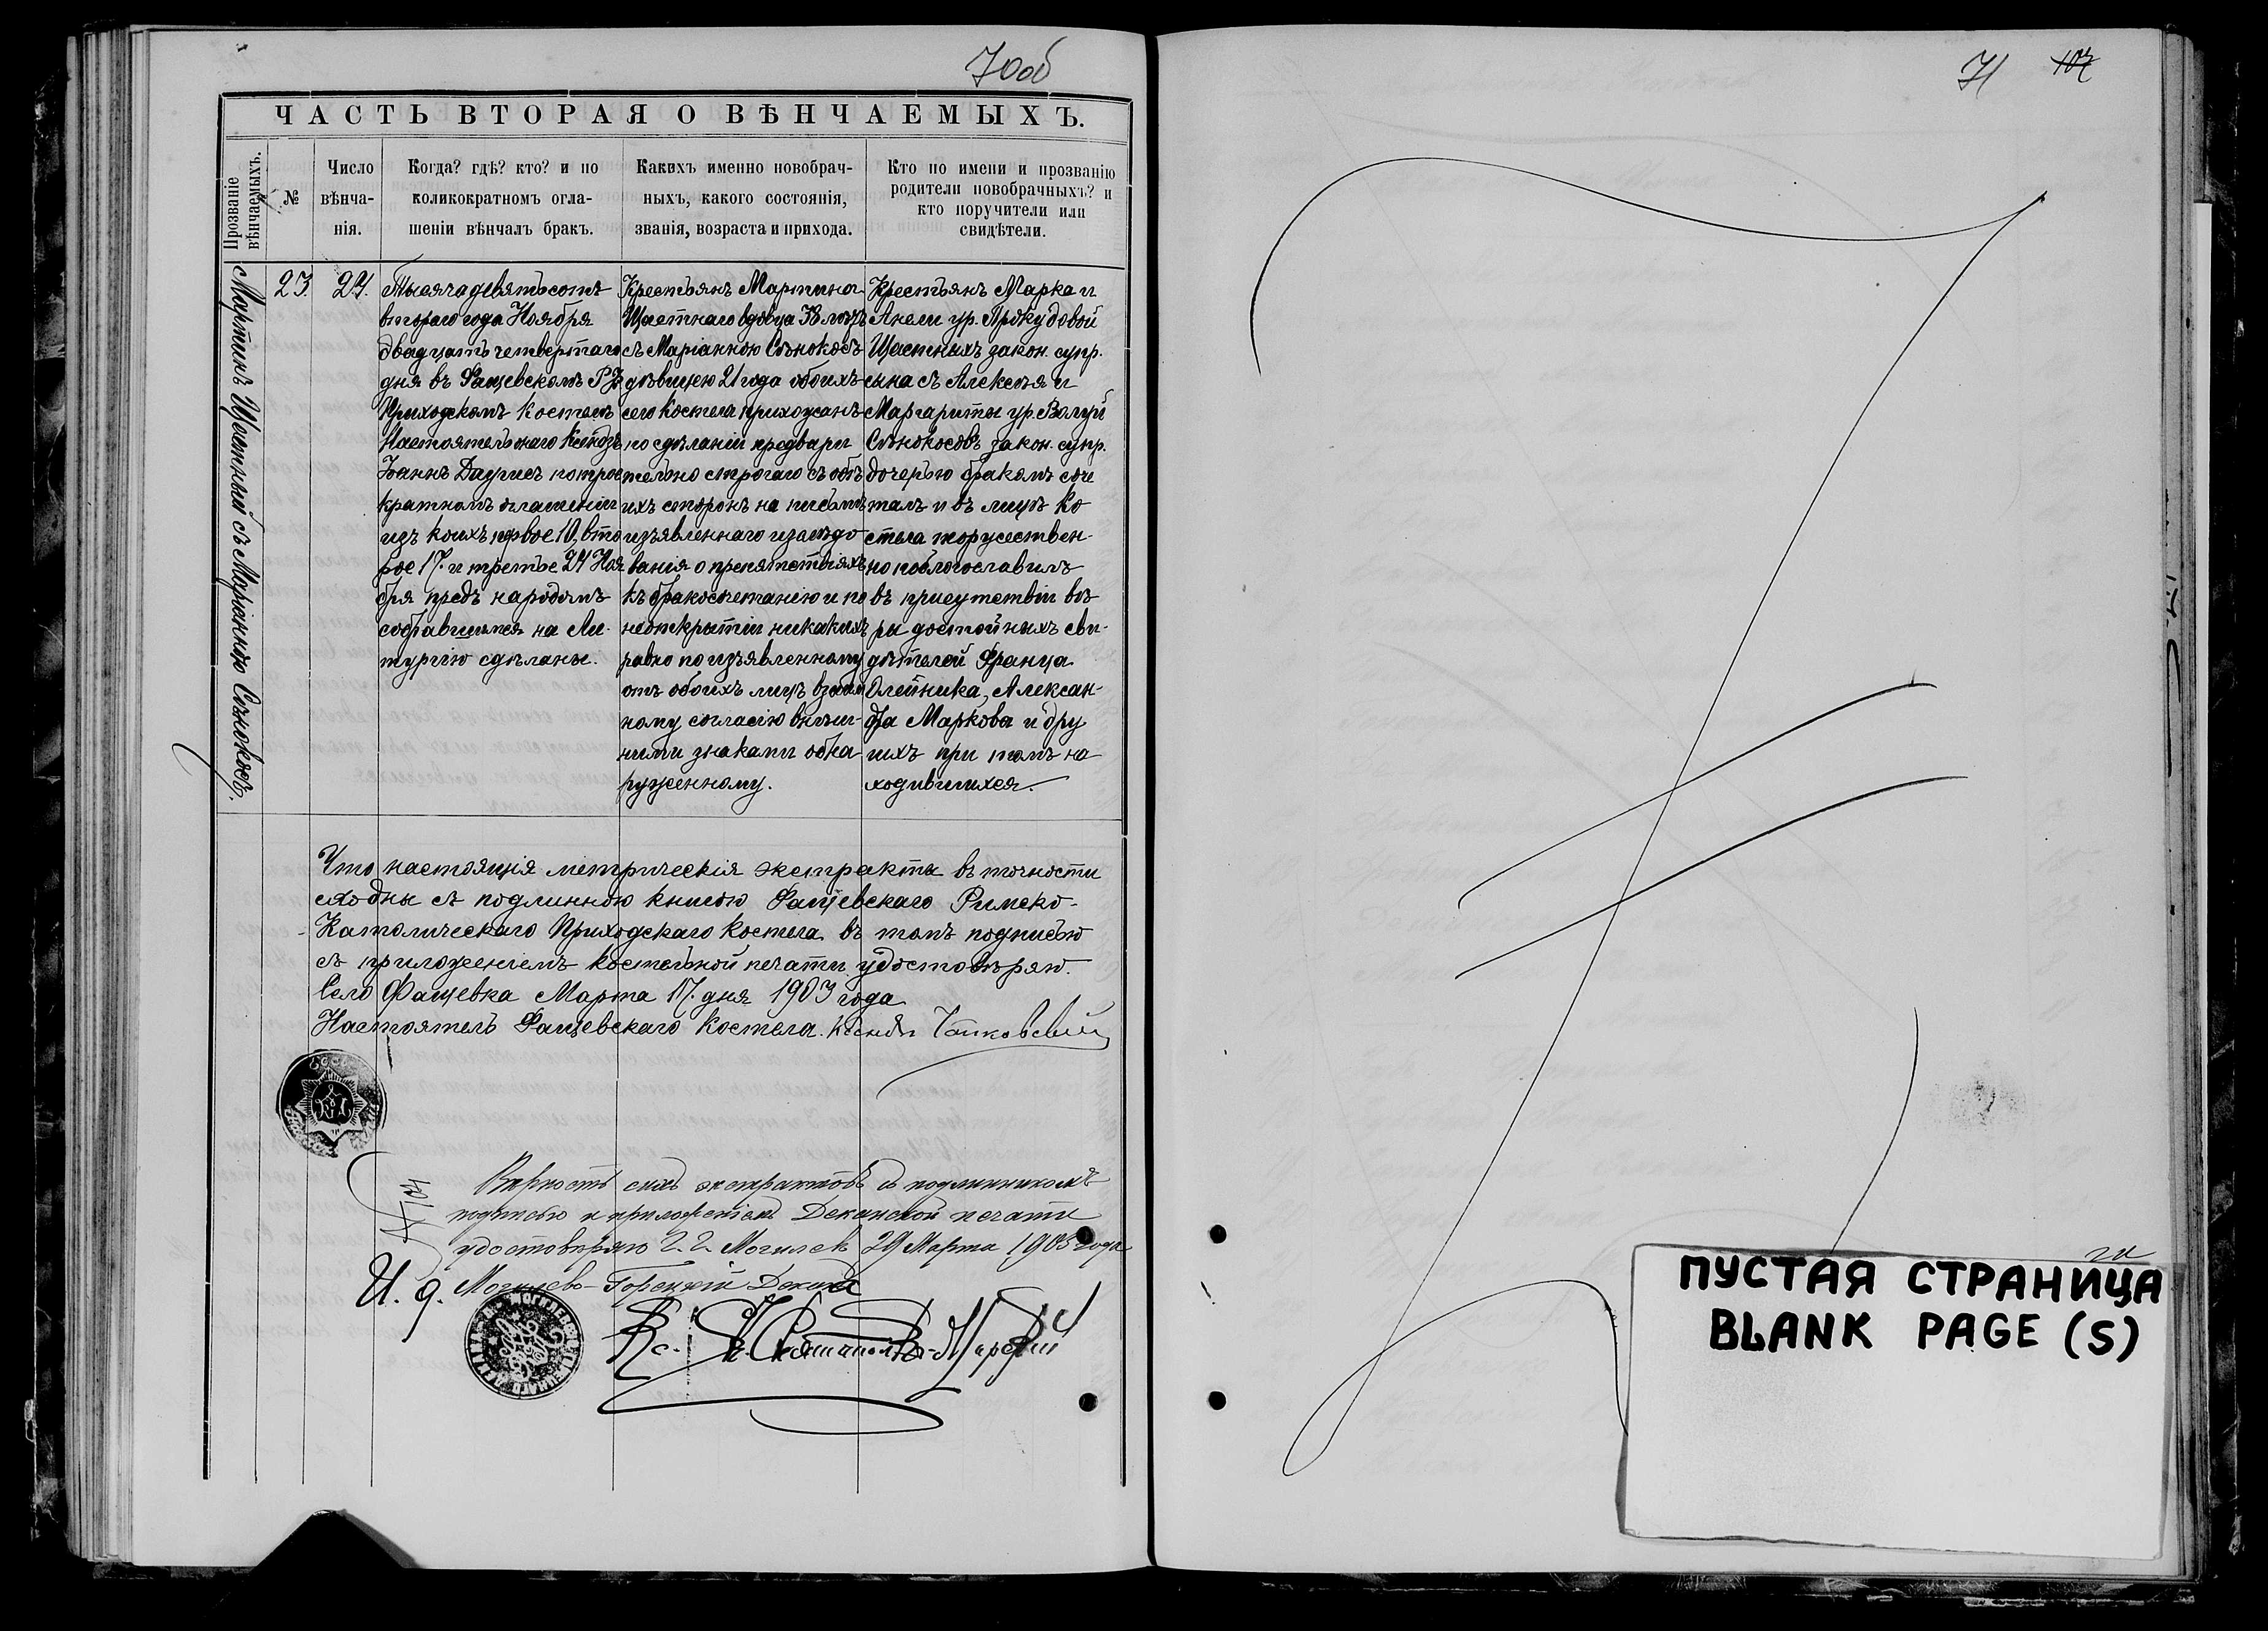 70об
ЧАСТЬ ВТОРАЯ О ВѢНЧАЕМЫХЪ.
Прозваніе вѣнчаемыхъ.
№
Число вѣнча-
нія.
Когда? гдѣ? кто? и по
коликократномъ огла-
шеніи вѣнчалъ бракъ.
Какихъ именно новобрач-
ныхъ, какого состоянія,
званія, возраста и прихода.
Кто по имени и прозванію
родители новобрачныхъ? и
кто поручители или
свидѣтели.
Мартинъ Щастный съ Маріанною Сѣнокосъ.
23.
24.
Тысяча девятьсотъ
втораго года Ноября
двадцать четвертаго
дня въ Фащевскомъ Р К
Приходскомъ Костелѣ
Настоятель онаго Ксендзъ
Іоаннъ по трое
кратномъ оглашеніи
изъ коихъ первое 10, вто
рое 17. и третье 24 Ноя
бря предъ народомъ
собравшимся на Ли-
тургію сдѣланы.
Крестьянъ Мартина
Щастнаго вдовца 38 лѣтъ
съ Маріанною Сѣнокосъ
дѣвицею 21 года обоихъ
сего Костела прихожанъ
по сдѣланіи предвари
тельно строгаго съ обѣ
ихъ сторонъ на письмѣ
изъявленнаго изслѣдо
ванія о препятствіяхъ
къ бракосочетанію и по
неоткрытіи никакихъ
равно по изъявленному
отъ обоихъ лицъ взаим
ному согласію внѣш-
ними знаками обна
руженному.
Крестьянъ Марка и
Анели ур. Прокудовой
Щастныхъ закон. супр.
сына съ Алексѣя и
Маргариты ур. Волуй
Сѣнокосовъ закон. супр.
дочерью бракомъ соче
талъ и въ лицѣ Ко
стела торжествен-
но поблогославилъ
въ присутствіи вѣ
ры достойныхъ сви-
дѣтелей Франца
Олейника, Алексан-
дра Маркова и дру
гихъ при томъ на
ходившихся.
Что настоящія метрическія экстракты въ точности
сходны съ подлинною книгою Фащевскаго Римско-
Католическаго Приходскаго Костела въ томъ подписью
съ приложеніемъ костельной печати удостовѣряю.
Село Фащевка Марта 17. дня 1903 года
Настоятель Фащевскаго Костела. Ксендзъ
Вѣрность сихъ экстрактовъ съ подлинникомъ
подписью и приложеніемъ Деканской печати
удостовѣряю Г. Г. Могилевъ 29 Марта 1903 года
И. д. Могилево-Горецкій Деканъ
Кс.
71
ПУСТАЯ СТРАНИЦА
BLANK PAGE (S)